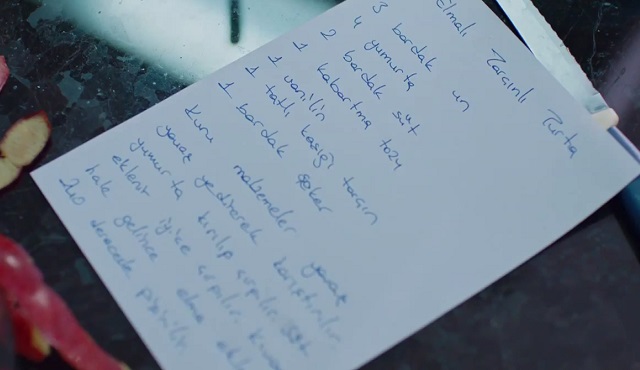 Elmalı Tarçınlı Turta
3 bardak un
4 yumurta
2 bardak süt
1 kabartma tozu
1 vanilin
1 tatlı kaşığı tarçın
1 bardak şeker
Kuru malzemeler yavaş
yavaş yedirerek karıştırılır
yumurta kırılıp çırpılır süt
eklenir iyice çırpılır
hale gelince elma
derecede pişirilir